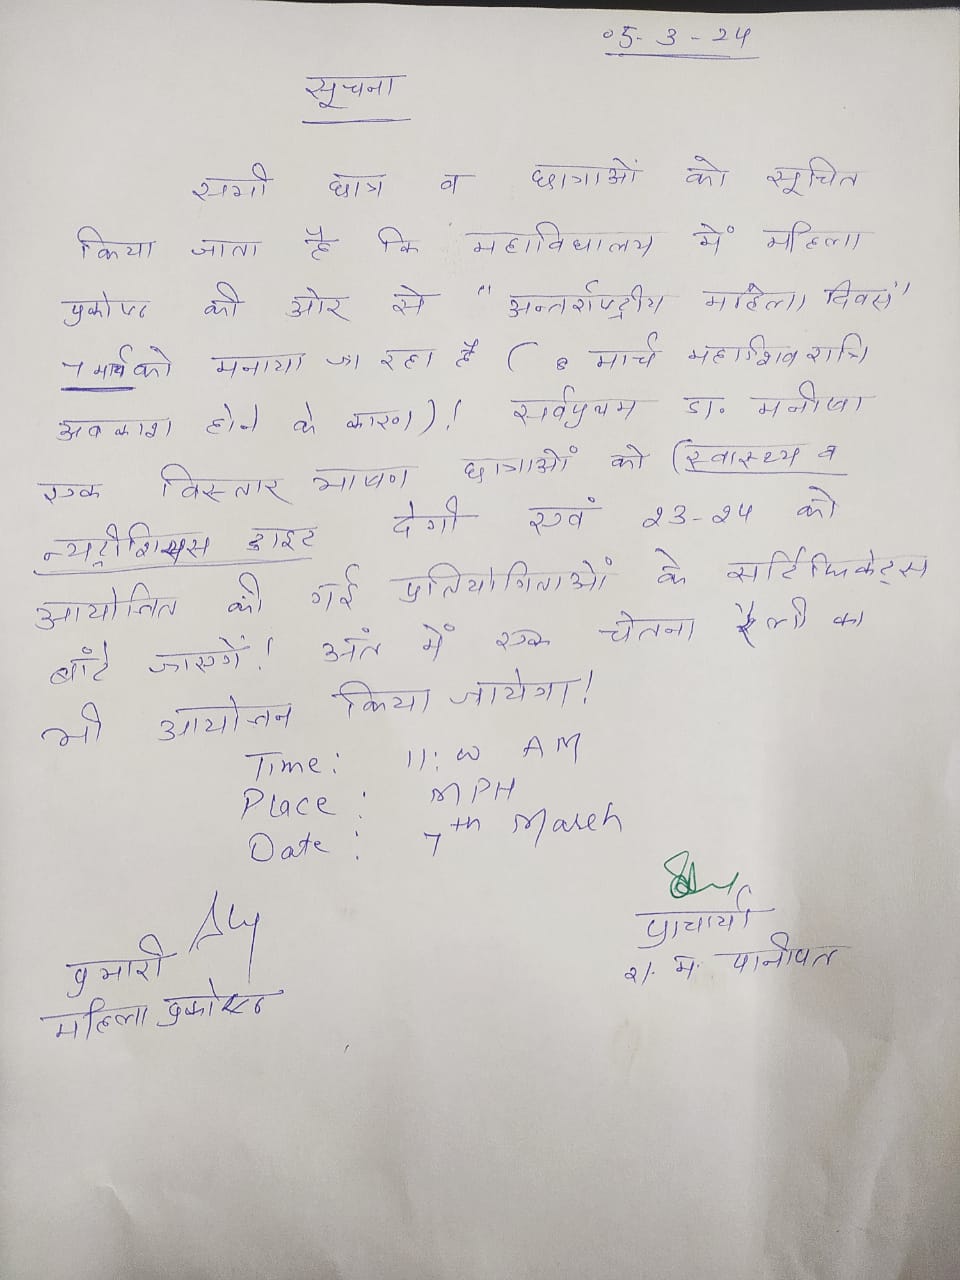 05-3-24
सूचना
सभी छात्र व छात्राओं को सूचित
किया जाता है कि महाविधालय में महिला
प्रकोष्ठ की ओर से "अन्तर्राष्ट्रीय महिला दिवस"
7 मार्च को मनाया जा रहा है ( 8 मार्च महाशिवरात्रि
अवकाश होने के कारण)! सर्वप्रथम डा. मनीषा
एक विस्तार भाषण छात्राओं को (स्वास्थ्य व
न्यूट्रीशियस डाइट देगी एवं 23-24 को
आयोजित की गई प्रतियोगिताओं के सर्टिफिकेट्स
बांटे जाएगें! अंत में एक चेतना रैली का
भी आयोजन किया जायेगा!
Time: 11:00 AM
Place: MPH
Date: 7th March
प्राचार्या
रा. म. पानीपत
प्रभारी
महिला प्रकोष्ठ